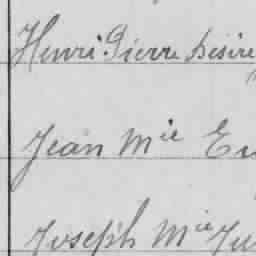 Henri Pierre Désiré
Jean Mie Eu
Joseph Mie Ju